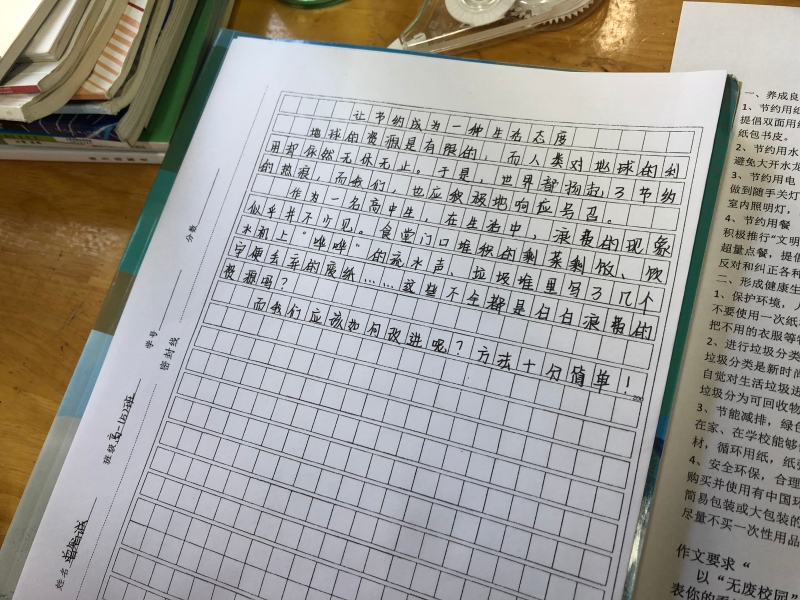 让节约成为一种生活态度
地球的资源是有限的，而人类对地球的利
用却依然无休无止。于是，世界都掀起了节约
的热潮，而我们，也应积极地响应号召。
作为一名高中生，在生活中，浪费的现象
似乎并不少见。食堂门口堆积的剩菜剩饭、饮
水机上“哗哗”的流水声、垃圾堆里写了几个
字便丢弃的废纸……这些不全都是白白浪费的
资源吗？
而我们应该如何改进呢？方法十分简单！
200
分数
学号
密封线
班级
姓名
一、养成良
1、节约用纸
提倡双面用纸
纸包书皮。
2、节约用水
避免大开水龙
3、节约用电
做到随手关灯
室内照明灯，
4、节约用餐
积极推行“文明
超量点餐，提倡
反对和纠正各种
二、形成健康生
1、保护环境，人
不要使用一次纸
把不用的衣服等
2、进行垃圾分类
垃圾分类是新时尚
自觉对生活垃圾进
垃圾分为可回收物
3、节能减排，绿色
在家、在学校能够
材，循环用纸，纸
4、安全环保，合理
购买并使用有中国环
简易包装或大包装的
尽量不买一次性用品
作文要求“
以“无废校园”
表你的看